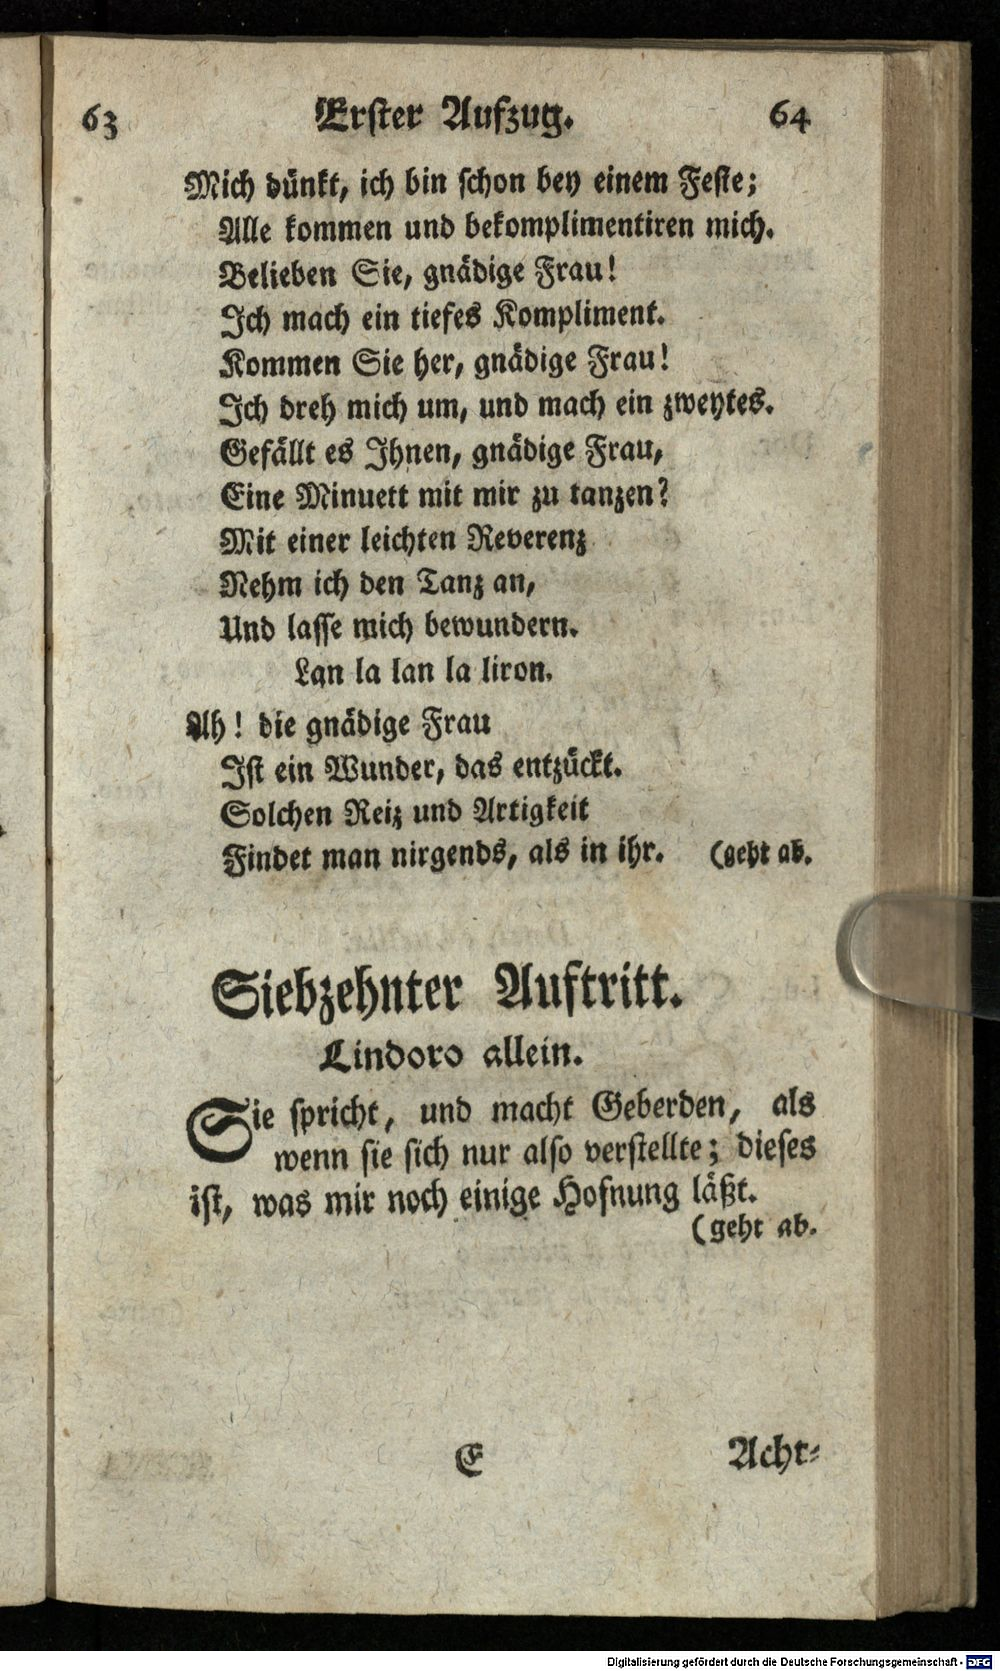 63 Erster Aufzug. 64
Mich dünkt, ich bin schon bey einem Feste;
Alle kommen und bekomplimentiren mich.
Belieben Sie, gnädige Frau!
Ich mach ein tiefes Kompliment.
Kommen Sie her, gnädige Frau!
Ich dreh mich um, und mach ein zweytes.
Gefällt es Ihnen, gnädige Frau,
Eine Minuett mit mir zu tanzen?
Mit einer leichten Reverenz
Nehm ich den Tanz an,
Und lasse mich bewundern.
Lan la lan la liron.
Ah! die gnädige Frau
Ist ein Wunder, das entzückt.
Solchen Reiz und Artigkeit
Findet man nirgends, als in ihr. (geht ab.
Siebzehnter Auftritt.
Lindoro allein.
Sie spricht, und macht Geberden, als
wenn sie sich nur also verstellte; dieses
ist, was mir noch einige Hofnung läßt.
(geht ab.
E Acht-
Digitalisierung gefördert durch die Deutsche Forschungsgemeinschaft - DFG